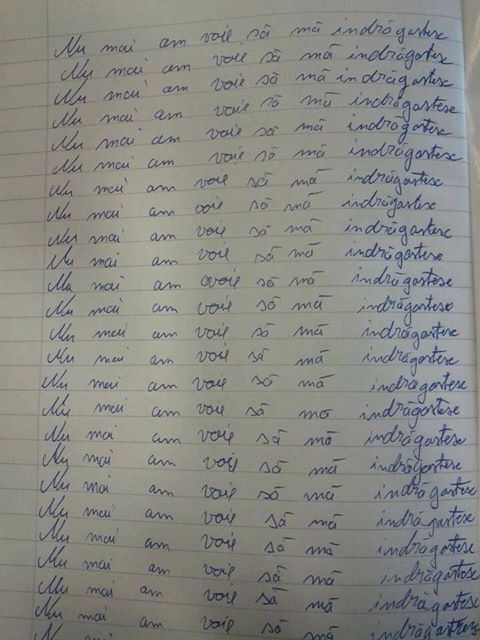 Nu mai am voie să mă îndrăgostesc
Nu mai am voie să mă îndrăgostesc
Nu mai am voie să mă îndrăgostesc
Nu mai am voie să mă îndrăgostesc
Nu mai am voie să mă îndrăgostesc
Nu mai am voie să mă îndrăgostesc
Nu mai am voie să mă îndrăgostesc
Nu mai am voie să mă îndrăgostesc
Nu mai am voie să mă îndrăgostesc
Nu mai am voie să mă îndrăgostesc
Nu mai am voie să mă îndrăgostesc
Nu mai am voie să mă îndrăgostesc
Nu mai am voie să mă îndrăgostesc
Nu mai am voie să mă îndrăgostesc
Nu mai am voie să mă îndrăgostesc
Nu mai am voie să mă îndrăgostesc
Nu mai am voie să mă îndrăgostesc
Nu mai am voie să mă îndrăgostesc
Nu mai am voie să mă îndrăgostesc
Nu mai am voie să mă îndrăgostesc
Nu mai am voie să mă îndrăgostesc
Nu mai am voie să mă îndrăgostesc
Nu mai am voie să mă îndrăgostesc
Nu mai am voie să mă îndrăgostesc